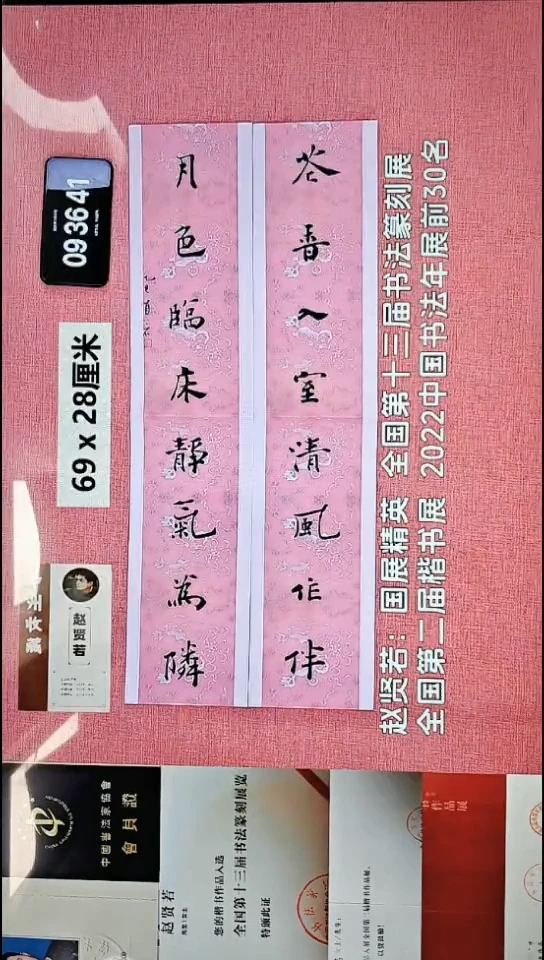 09 36 41
69 x 28厘米
花香入室清风作伴
月色臨床靜氣為隣
赵贤若
赵贤若：国展精英 全国第十三届书法篆刻展
全国第二届楷书展 2022中国书法年展前30名
中國書法家協會
會員證
赵贤若
您的楷书作品入选
全国第十三届书法篆刻展览
特颁此证
作品展